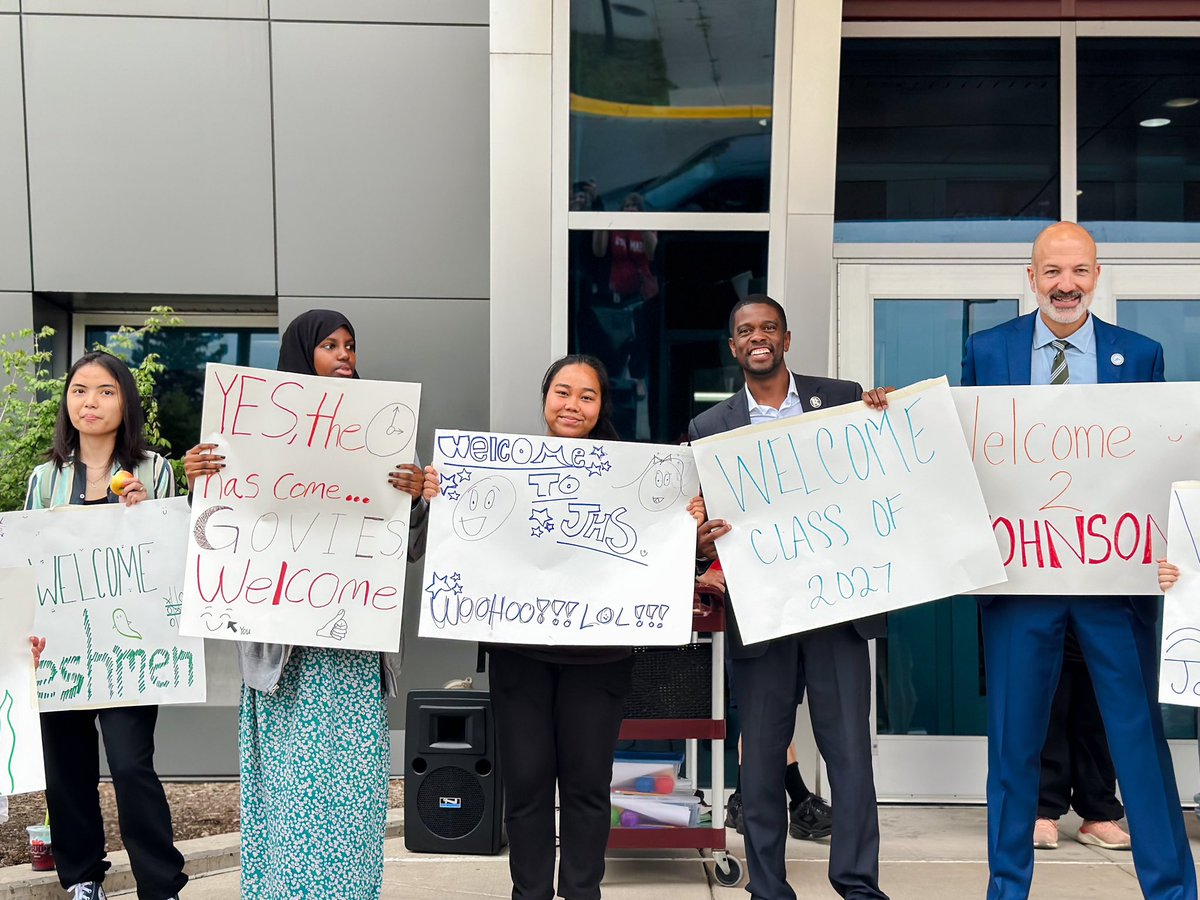 WELCOME
eshmen
YES, the
has come...
GOVIES,
Welcome
You
WELCOME
TO
JHS
WOOHOO!!! LOL!!!
WELCOME
CLASS OF
2027
Welcome
2
OHNSON